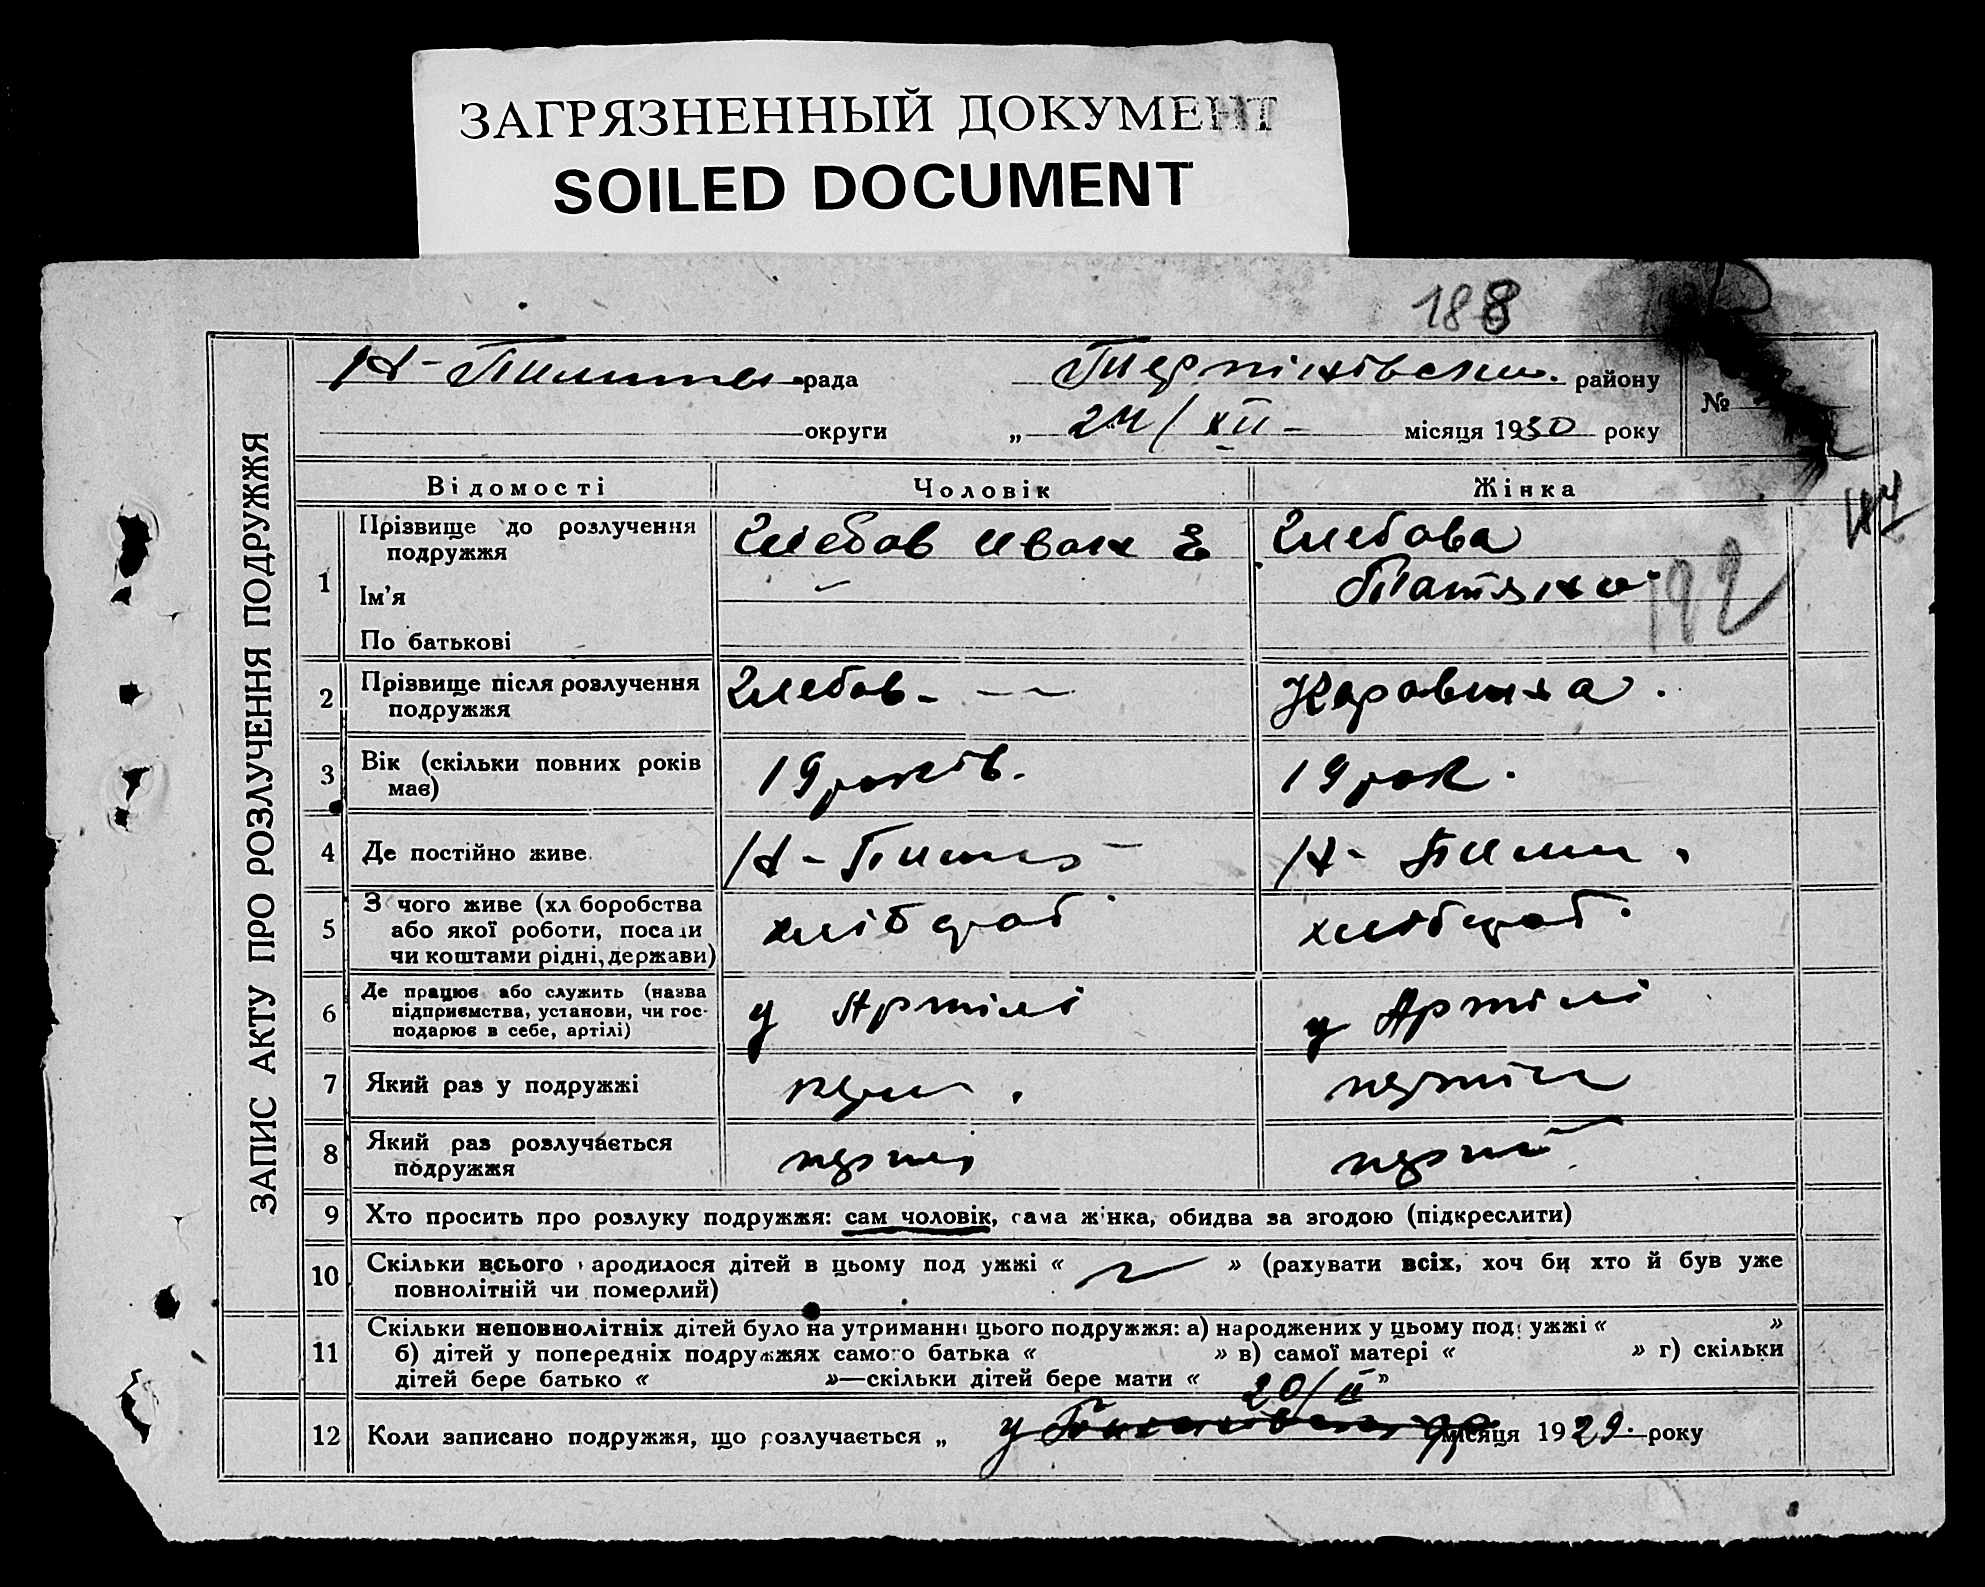 ЗАГРЯЗНЕННЫЙ ДОКУМЕНТ
SOILED DOCUMENT
188
рада району
№
округи „ 24/XII – місяця 1930 року
ЗАПИС АКТУ ПРО РОЗЛУЧЕННЯ ПОДРУЖЖЯ
Відомості Чоловік Жінка
1
Прізвище до розлучення подружжя Глебов Иван Е Глебова
Ім'я Татяна
По батькові
192
2 Прізвище після розлучення Глебов
подружжя
3 Вік (скільки повних років 19 років. 19 рок.
має)
4 Де постійно живе Н- Н-
5 З чого живе (хліборобства хлібороб хлібороб
або якої роботи, посади
чи коштами рідні, держави)
6 Де працює або служить (назва у Артілі у Артілі
підприємства, установи, чи гос-
подарює в себе, артілі)
7 Який раз у подружжі
8 Який раз розлучається перший перший
подружжя
9 Хто просить про розлуку подружжя: сам чоловік, сама жінка, обидва за згодою (підкреслити)
10 Скільки всього народилося дітей в цьому подружжі « » (рахувати всіх, хоч би хто й був уже
повнолітній чи померлий)
11 Скільки неповнолітніх дітей було на утриманні цього подружжя: а) народжених у цьому подружжі « »
б) дітей у попередніх подружжях самого батька « » в) самої матері « » г) скільки
дітей бере батько « »—скільки дітей бере мати « »
20/II
12 Коли записано подружжя, що розлучається „ місяця 1929. року